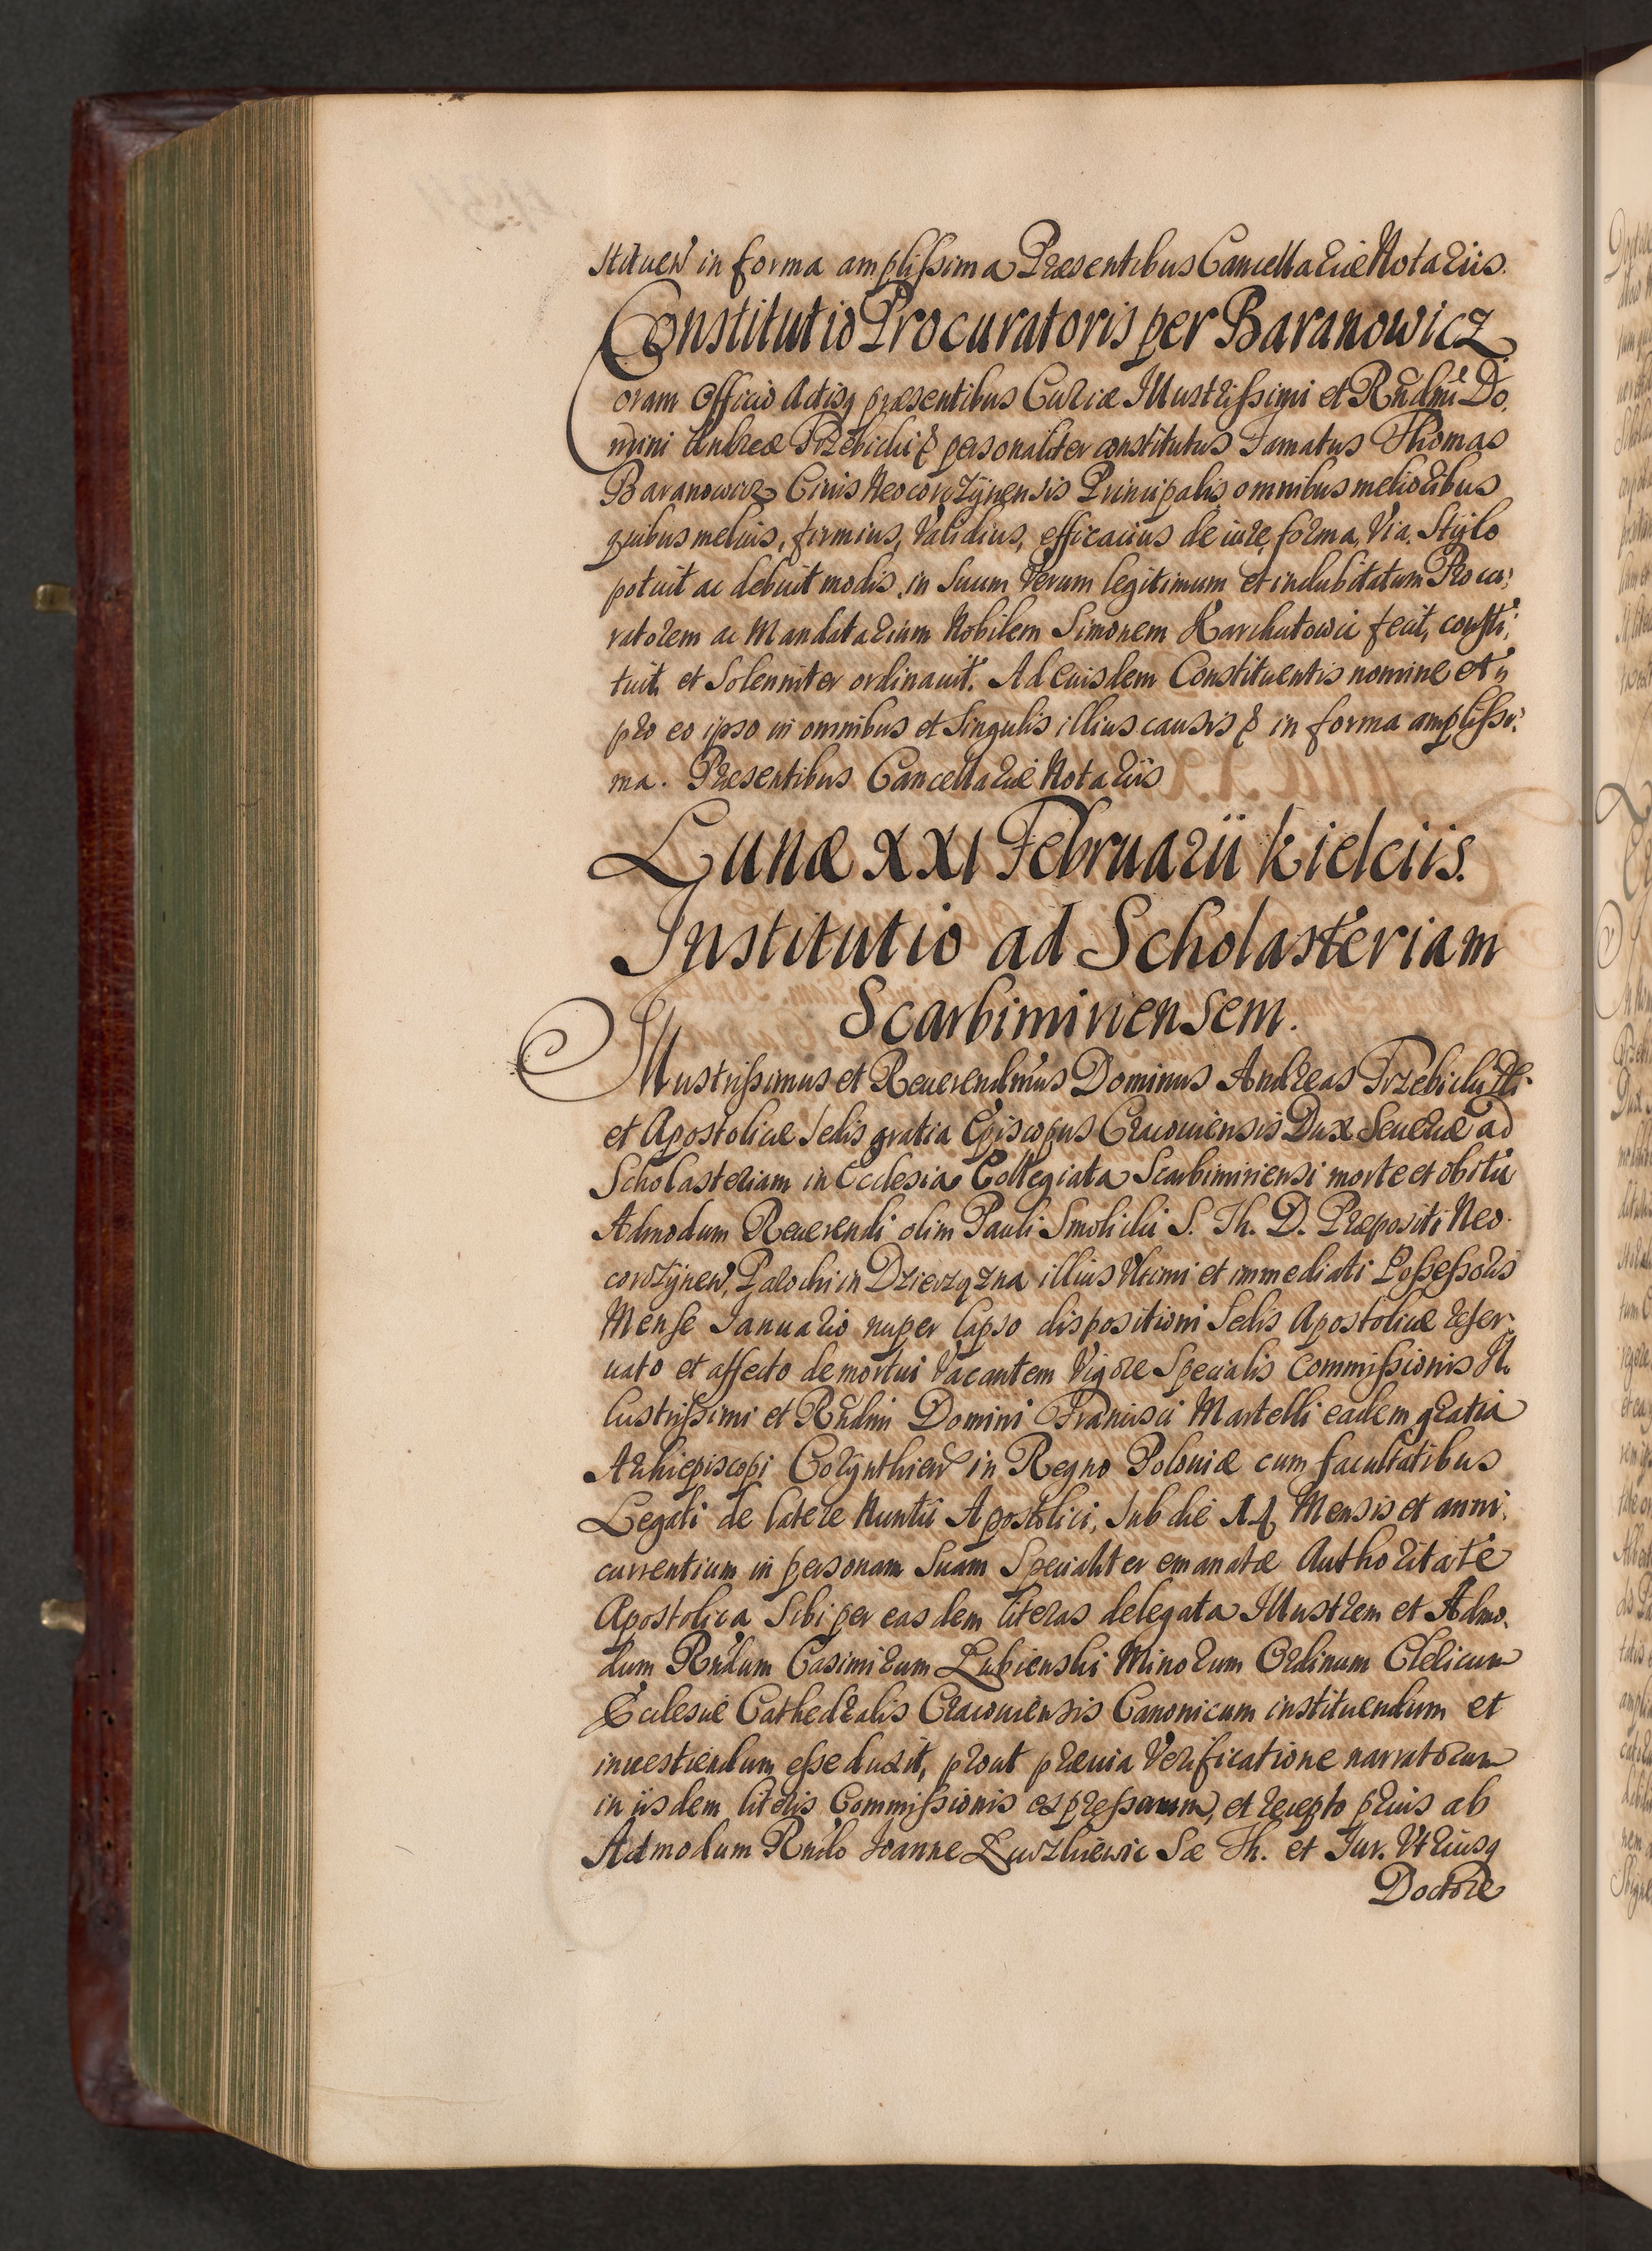 stituen in forma amplißima Præsentibus Cancellariæ Notariis.
Constitutio Procuratoris per Baranowicz
Coram Officio Actisq præsentibus Curiæ Illustrißimi et Rndmi Do,
mini Andreæ Trzebicki & personaliter constitutus Famatus Thomas
Baranowicz Civis Neocorczÿnensis Principalis omnibus melioribus
quibus melius, firmius, Validius, efficacius de iure, forma, Via, Stÿlo
potuit ac debuit modis, in Suum Verum legitimum et indubitatum Procu,
ratorem ac Mandatarium Nobilem Simonem Karchutowic fecit, consti,
tuit, et Solenniter ordinauit. Ad Euisdem Constituentis nomine et
pro eo ipso in omnibus et Singulis illius causis & in forma amplißi,
ma. Præsentibus Cancellariæ Notariis
Lunæ XXI Februarii Kielciis.
Institutio ad Scholasteriam
Scarbimiriensem.
Illustrißimus et Reuerendmus Dominus Andreas Trzebicki Di
et Apostolicæ Sedis gratia Episcopus Cracouiensis Dux Seueriæ ad
Scholasteriam in Ecclesia Collegiata Scarbimiriensi morte et obitu
Admodum Reuerendi olim Pauli Smolicki S. Th. D. Præpositi Neo
corczÿnen, Parochi in Dzierzązna illius Vltimi et immediati Poßeßoris
Mense Ianuario nuper lapso dispositioni Sedis Apostolicæ reser,
uato et affecto demortui Vacantem Vigore Specialis Commißionis Il
lustrißimi et Rndmi Domini Francisci Martelli eadem gratia
Archiepiscopi Corÿnthien in Regno Poloniæ cum facultatibus
Legati de latere Nuntii Apostolici, Sub die 14 Mensis et anni,
currentium in personam Suam Specialiter emanatæ Authoritate
Apostolica Sibi per easdem literas delegata Illustrem et Admo,
dum Rndum Casimirum Lubienski Minorum Ordinum Clericum
Ecclesiæ Cathedralis Cracouiensis Canonicum instituendum et
inuestiendum eße duxit, prout præuia Verificatione narratorum
in iisdem literis Commißionis expreßarum, et recepto prius ab
Admodum Rndo Joanne Sæ Th. et Iur. Vtriusq
Doctore